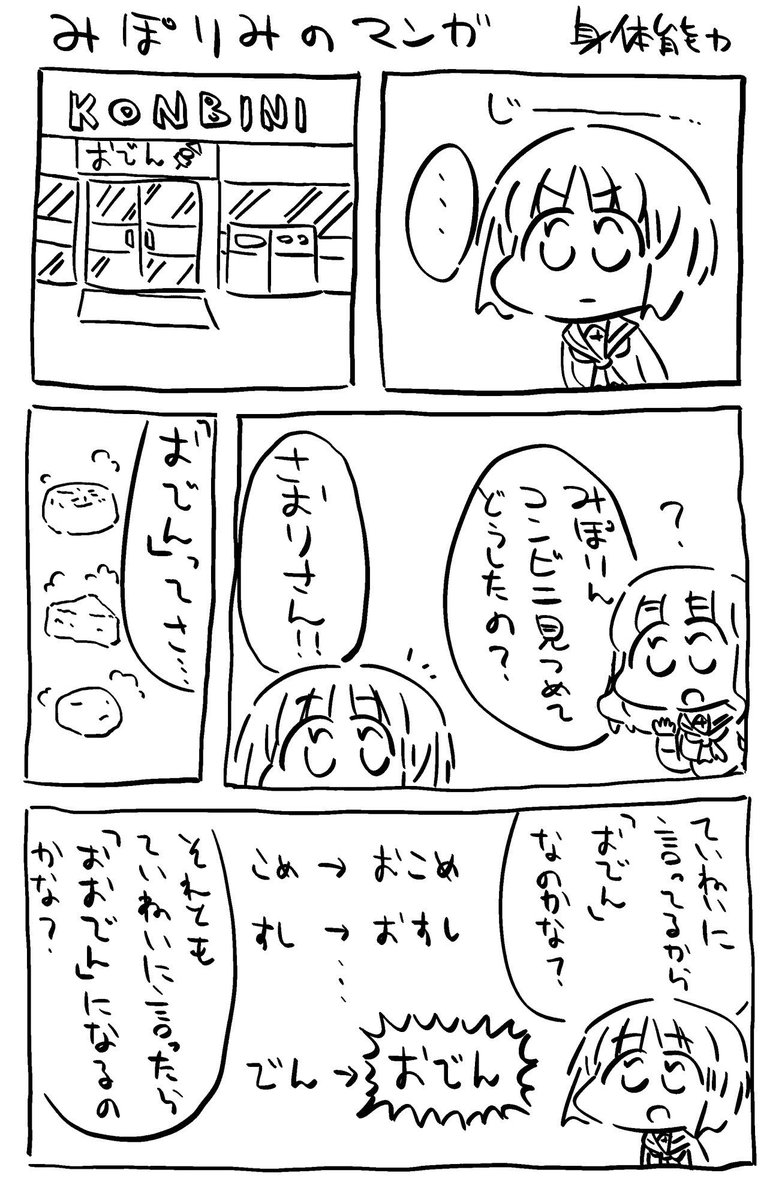 みぽりみのマンガ 身体能力
じーーー…
…
KONBINI
おでん
?
みぽりん
コンビニ見つめて
どうしたの?
さおりさん!!
「おでん」ってさ…
ていねいに
言ってるから
「おでん」
なのかな?
こめ→おこめ
すし→おすし
⋮
でん→おでん
それとも
ていねいに言ったら
「おおでん」になるの
かな?